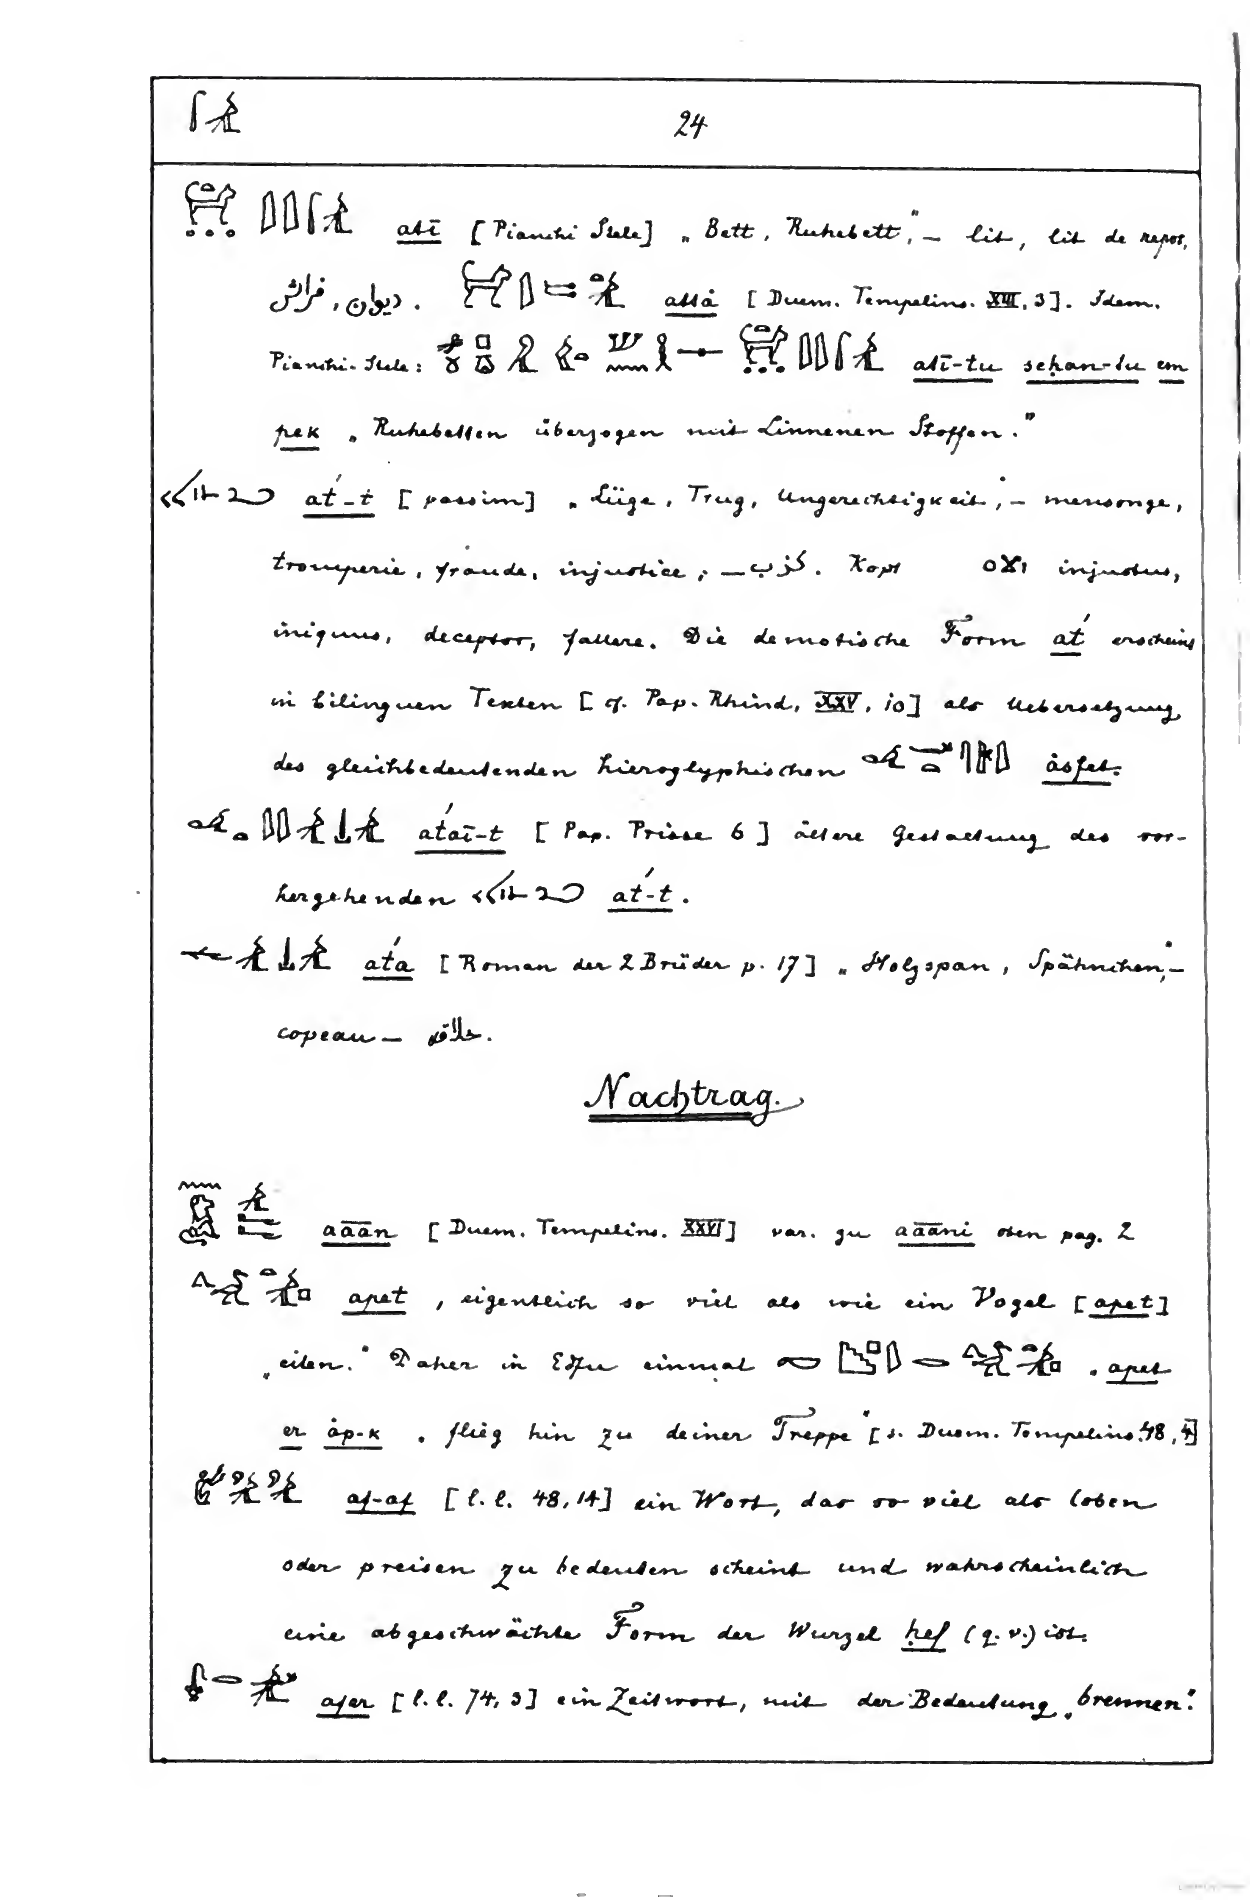 24
atī [Pianchi Stele] „Bett, Ruhebett,“ – lit, lit de repos,
ديوان, فراش. attȧ [Duem. Tempelins. XVII, 3]. Idem.
Pianchi-Stele: atī-tu seḥan-tu em
pek „Ruhebetten überzogen mit Linnenen Stoffen.“
at́-t [passim] „Lüge, Trug, Ungerechtigkeit,“ – mensonge,
tromperie, fraude, injustice; – كذب. Kopt ⲟϫⲓ injustus,
iniquus, deceptor, fallere. Die demotische Form at́ erscheint
in bilinguen Texten [cf. Pap. Rhind, XXV, 10] als Uebersetzung
des gleichbedeutenden hieroglyphischen ȧsfet.
at́aī-t [Pap. Prisse 6] ältere Gestaltung des vor-
hergehenden at́-t.
at́a [Roman der 2 Brüder p. 17] „Holzspan, Spähnchen,“ –
copeau –
Nachtrag.
aāān [Duem. Tempelins. XXVI] var. zu aāāni oben pag. 2
apet, eigentlich so viel als wie ein Vogel [apet]
„eilen.“ Daher in Edfu einmal . apet
er ȧp-k „flieg hin zu deiner Treppe“ [s. Duem. Tempelins. 48, 4]
af-af [l. l. 48, 14] ein Wort, das so viel als loben
oder preisen zu bedeuten scheint und wahrscheinlich
eine abgeschwächte Form der Wurzel ḥef (q. v.) ist.
afer [l. l. 74, 3] ein Zeitwort, mit der Bedeutung „brennen“.